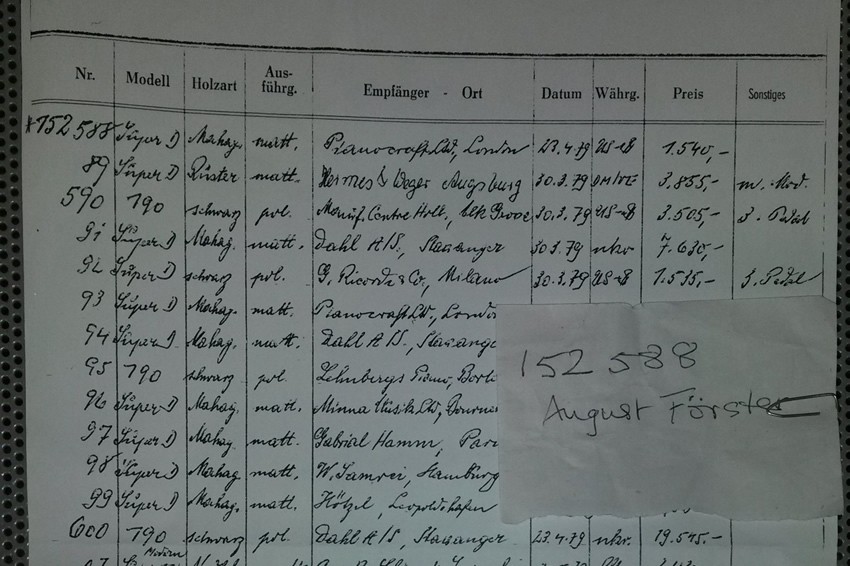 Nr. Modell Holzart Aus- führg. Empfänger - Ort Datum Währg. Preis Sonstiges
*152 588 Super D Mahag. matt. Pianocraft Ltd, London 23.4.79 US-$ 1.540,-
89 Super D Rüster matt. Augsburg 30.3.79 3.855,- m. Mod.
590 190 schwarz pol. Manuf. Centre Holt, 30.3.79 US-$ 3.505,- 3. Pedal
91 Super D Mahag. matt. Dahl A/S, Stavanger 30.3.79 nkr. 7.630,-
92 Super D schwarz pol. G. Ricordi & Co, Milano 30.3.79 US-$ 1.535,- 3. Pedal
93 Super D Mahag. matt. Pianocraft Ltd, Londo
94 Super D Mahag. matt. Dahl A/S, Stavange
95 190 schwarz pol. Piano, Berli
96 Super D Mahag. matt. Minna Musik Ltd, Bourne
97 Super D Mahag. matt. Gabrial Hamm, Par
98 Super D Mahag. matt. W. Hamburg
99 Super D Mahag. matt. Hötzel, Leopoldshafen
600 190 schwarz pol. Dahl A/S, Stavanger 23.4.79 nkr. 19.515,-
152 588
August Förster